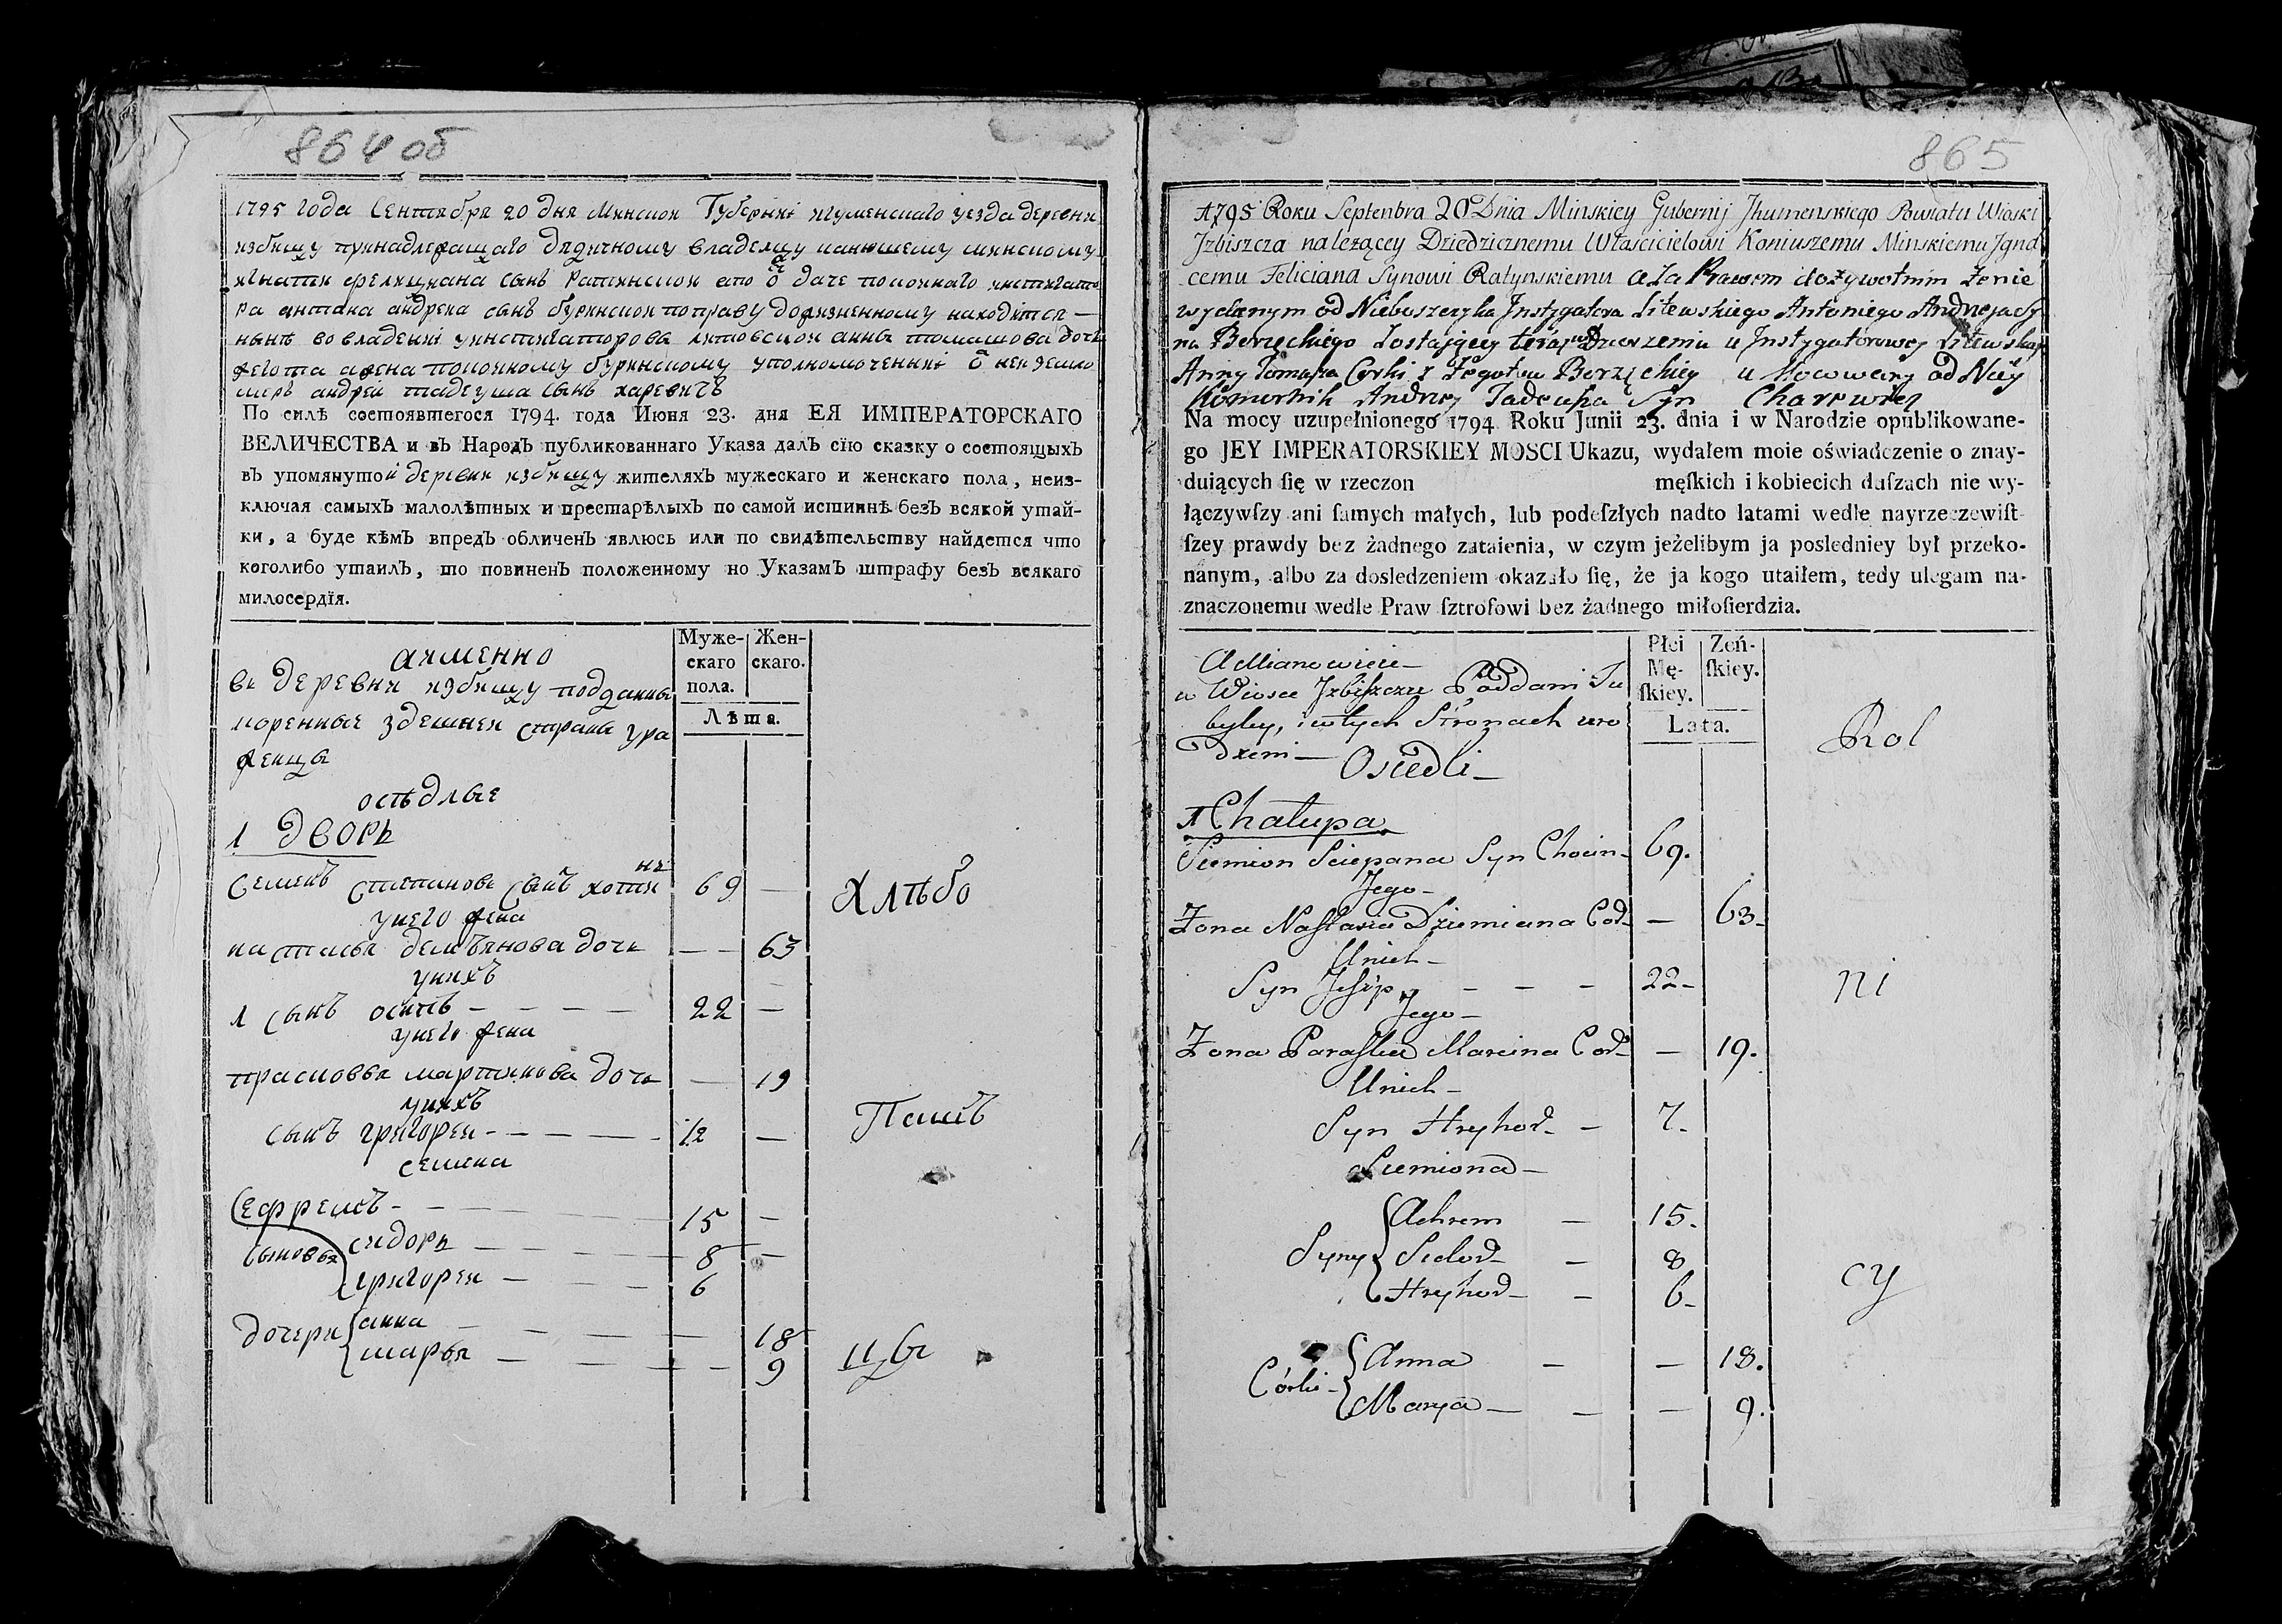 864 об
1795 года Сентября 20 дня Минской Губерниі игуменскаго уезда деревни
избищу принадлежащаго дядичному владелцу канюшему минскому
игнатия фелициана сынъ Ратынской а по даче покойнаго инстигато
ра антана андрея сынъ буринской по праву дожизненному находится —
ныне во владениі уинстигаторовь литовской анны томашова дочь
жегота ажена покойному буринскому уполномоченниі о ней земко
миръ андрей тадеуша сынъ харевичъ
По силѣ состоявшегося 1794. года Июня 23. дня ЕЯ ИМПЕРАТОРСКАГО
ВЕЛИЧЕСТВА и въ Народъ публикованнаго Указа далъ сїю сказку о состоящыхъ
въ упомянутой деревни избищу жителяхъ мужескаго и женскаго пола, неиз-
ключая самыхъ малолѣтныхъ и престарѣлыхъ по самой истиннѣ безъ всякой утай-
ки, а буде кѣмъ впредь обличенъ явлюсь или по свидѣтельству найдется что
коголибо утаилъ, то повиненъ положенному по Указамъ штрафу безъ всякаго
милосердїя.
аименно
Муже-
скаго
пола.
Жен-
скаго.
Лѣта.
вь деревни избищу подданные
коренные здешней стараны ура
женцы
оседлые
1 дворь
Семенъ Степановь сынъ хотя нъ 69 —
унего жена
настасья демьянова дочь — — 63
унихъ
1 сынъ осипъ — — — — 22 —
унего жена
прасковья мартинова дочь — 19
унихъ
сынъ григорей — — — — 12 —
семена
ефремъ — 15 —
сыновья сидорь — 8 —
григорей — 6
дочери анна — 18
марья — 9
Хлѣбо
Пашъ
цы
865
1795 Roku Septenbra 20 Dnia Minskiey Gubernij Jhumenskiego Powiatu Wioski
Jzbiszcza nalezącey Dziedzicznemu Włascicielowi Koniuszemu Minskiemu Jgna
cemu Feliciana Synowi Ratynskiemu a Za Prawem dożywotnim Zenie
wydanym od Nieboszczyka Jnstygatora Litewskiego Antoniego Andrzeja Sy
na Berzęckiego Zostającey teraz w Dzierzeniu u Jnstygatorowey Litewskiey
Anny Tomasza Corki z Zegotow Berząckiey u Mocowany od Niey
Komornik Andrzey Tadeusza Syn Charewicz
Na mocy uzupełnionego 1794. Roku Junii 23. dnia i w Narodzie opublikowane-
go JEY IMPERATORSKIEY MOSCI Ukazu, wydałem moie oświadczenie o znay-
duiących ſię w rzeczon męſkich i kobiecich duſzach nie wy-
łączywſzy ani ſamych małych, lub podeſzłych nadto latami wedle nayrzeczewiſt-
ſzey prawdy bez żadnego zataienia, w czym jeżelibym ja posledniey był przeko-
nanym, albo za dosledzeniem okazało ſię, że ja kogo utaiłem, tedy ulegam na-
znaczonemu wedle Praw ſztrofowi bez żadnego miłoſierdzia.
A Mianowicie —
Płci
Mę-
ſkiey.
Zeń-
ſkiey.
Lata.
w Wiosce Jzbiszczu Poddani Tu
bylcy, i w tych Stronach uro
dzeni —
Osiedli —
1 Chałupa
Siemion Sciepana Syn Chocin — 69.
Jego —
Zona Nastazia Dziemiana Cod — — 63 —
Unich —
Syn Jesip — — — 22 —
Jego —
Zona Paraska Marcina Cod — — 19.
Unich —
Syn Hryhor — — 7.
Siemiona —
Achrem — 15.
Syny Sidor — — 8
Hryhor — — 6 —
Córki — Anna — — 18.
Marya — — — 9.
Rol
ni
cy